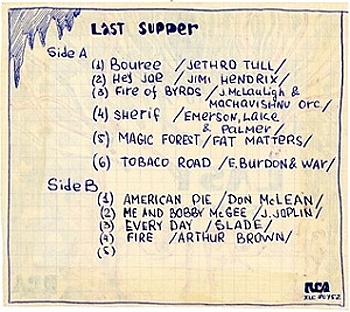 Last Supper
Side A
(1) Bouree /JETHRO TULL/
(2) Hey Joe /JIMI HENDRIX/
(3) Fire of BYRDS /J.McLauligh &
MACHAVISHNU ORC./
(4) SHERIF /EMERSON, LAKE
& PALMER/
(5) MAGIC FOREST /FAT MATTERS/
(6) TOBACO ROAD /E.BURDON & WAR/
Side B
(1) AMERICAN PIE /DON McLEAN/
(2) ME AND BOBBY McGEE /J.JOPLIN/
(3) EVERY DAY /SLADE/
(4) FIRE /ARTHUR BROWN/
(5)
RCA